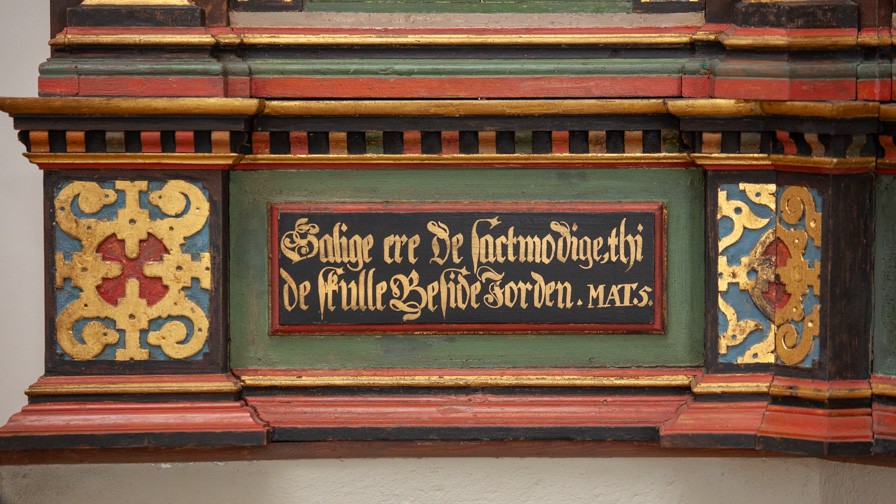 Salige ere De sactmodige, thi
de skulle Beside Jorden. MAT. 5.